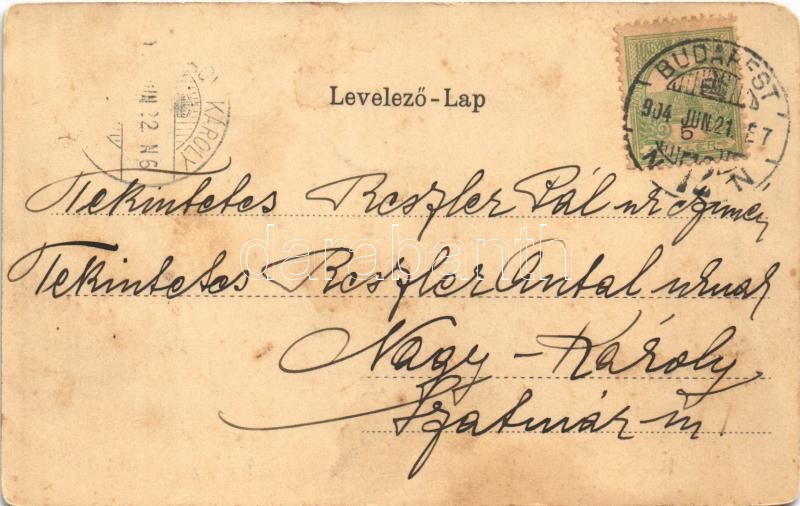 Levelező-Lap
BUDAPEST
904 JUN. 21
N
KÁROLY
JUN 22 N6
Tekintetes Reszler Pál úr czímen
Tekintetes Reszler Antal úrnak
Nagy-Károly
Szatmár m.
darabanth